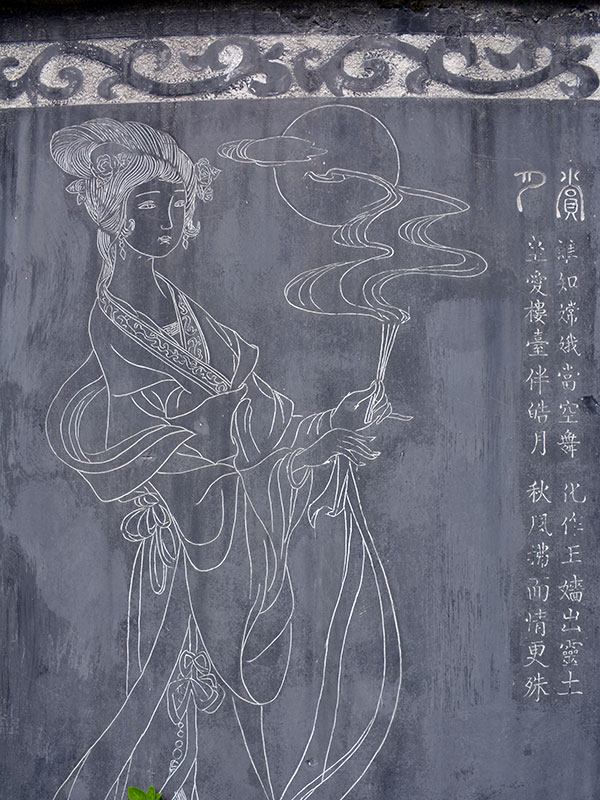 賞月
誰知嫦娥當空舞 化作王嬙出靈土
坐愛樓臺伴皓月 秋風拂面情更殊